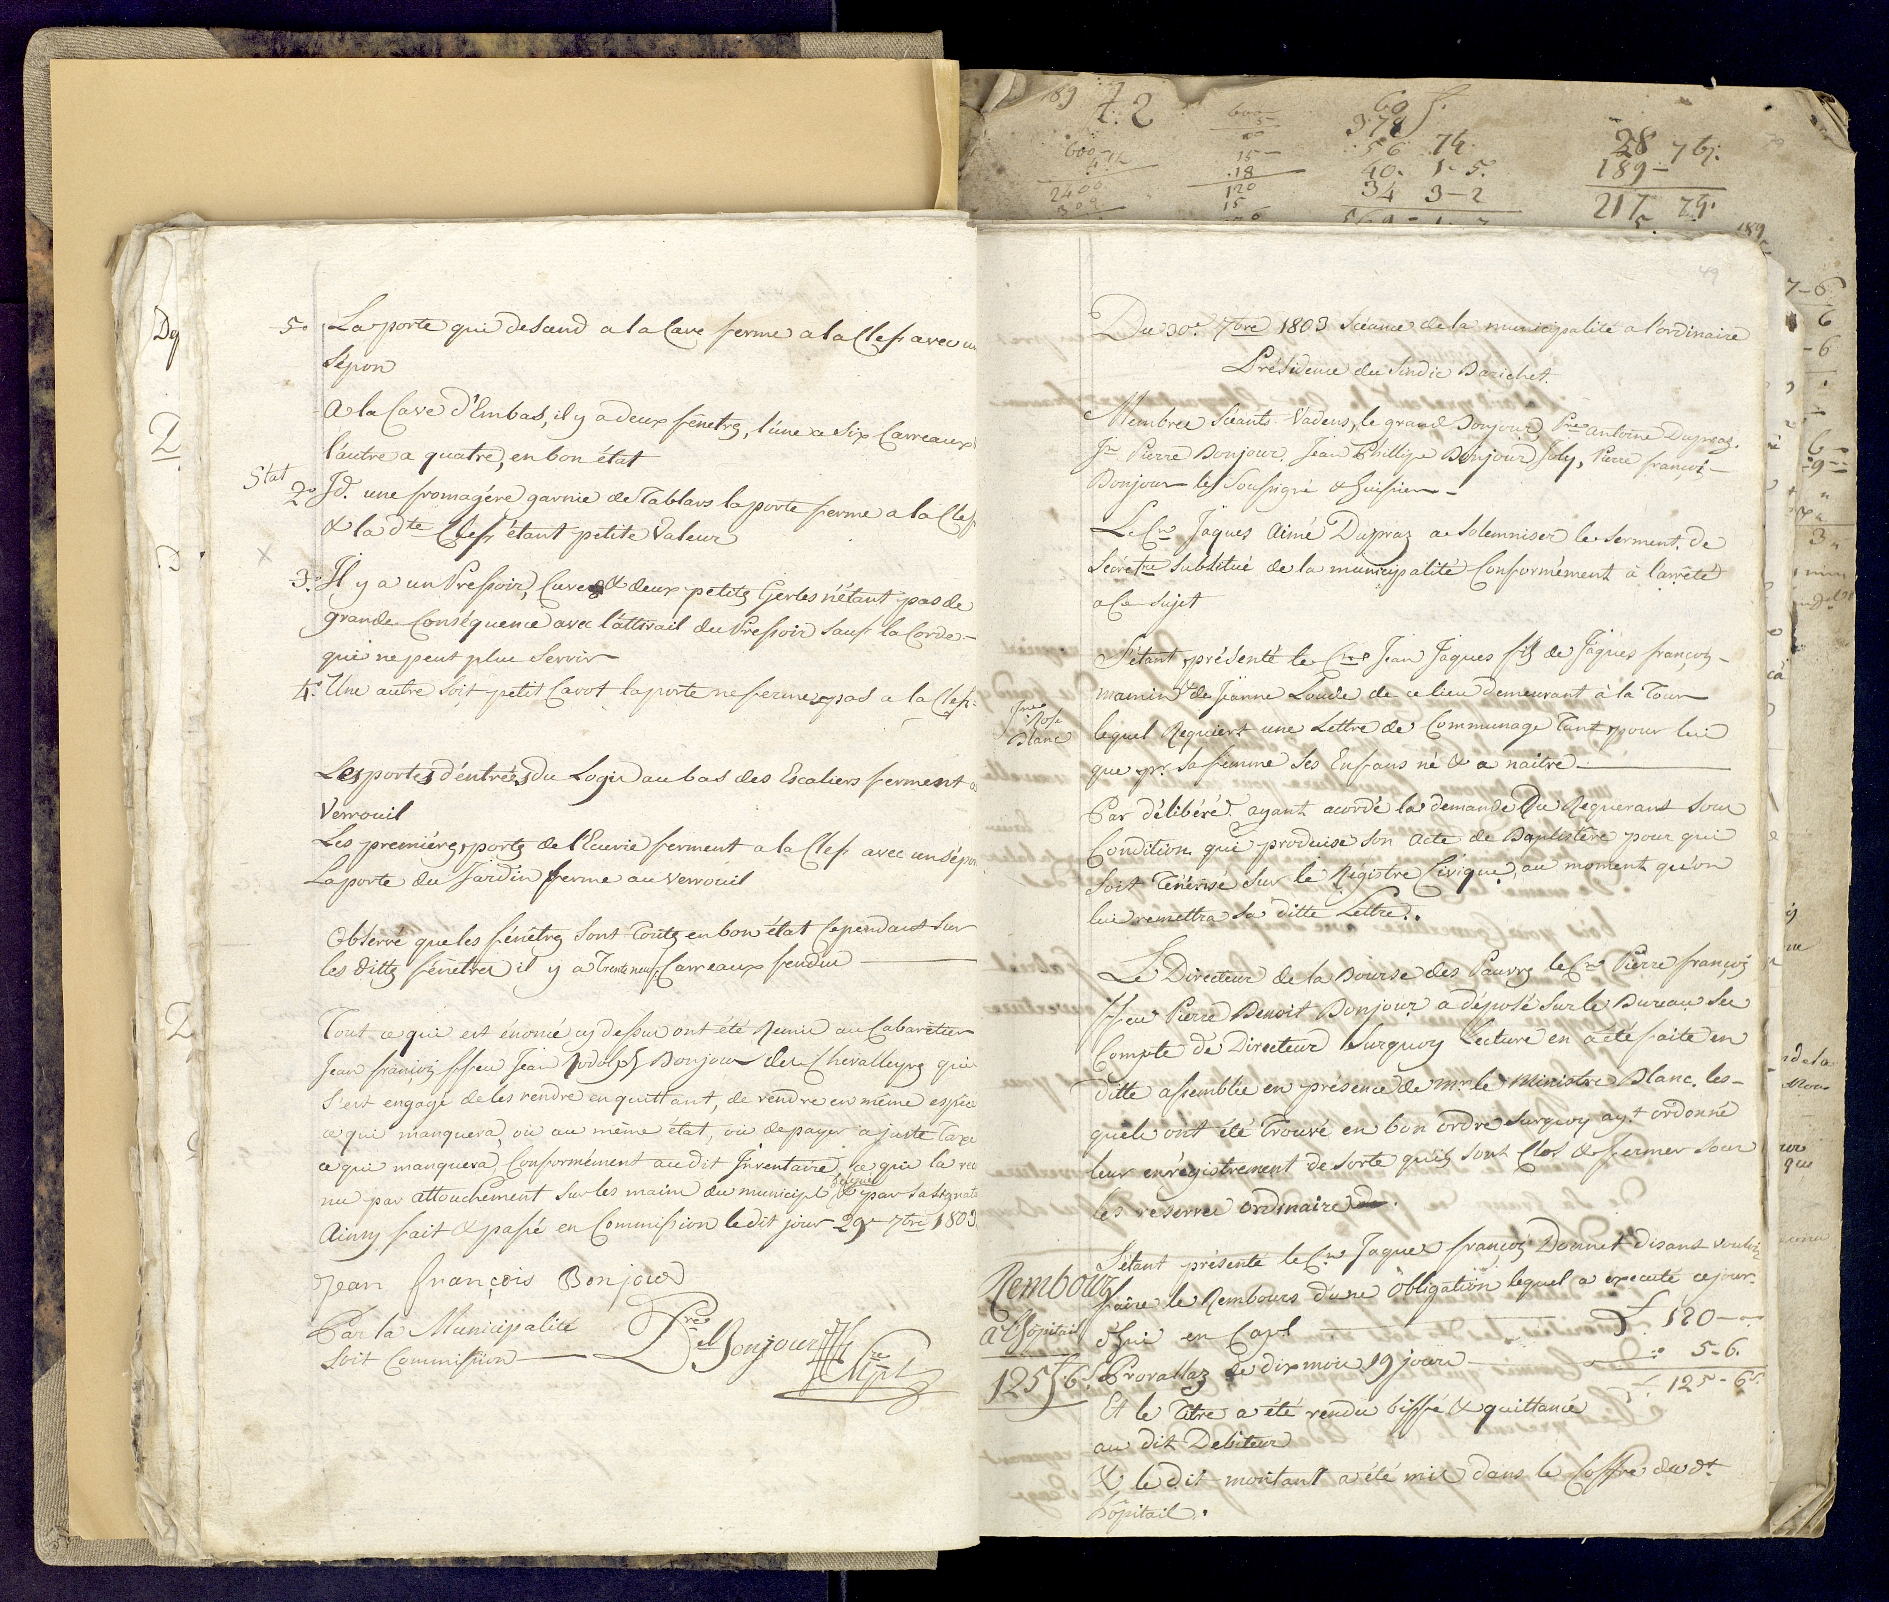 5o La porte qui desend a la Cave ferme a la Clef avec un
Sépon
a la Cave d'Embas, il y a deux fénetrs, l'une a Six Carreaux
l'autre a quatre, en bon état
2o Jd. une fromagére garnie de Tablars la porte ferme a la Clef
& la dte Clef étant petite Valeur
3o Il y a un Pressoir, Cuve & deux petits Gerles n'étant pas de
grande Conséquence avec l'attirail du Pressoir Sauf la Corde
qui ne peut plus Servir
4o Une autre soit petit Cavot la porte ne ferme pas a la Clef.
Les portes d'entrées du Logis au bas des Escaliers ferment a
Verrouil
Les premiérs portes de l'Ecurie ferment a la Clef avec un sépon
La porte du Jardin ferme au verrouil
Observé que les fénêtrs sont toutes en bon état Cependant Sur
les dittes fénêtres il y a Trente neuf Carreaux fendus
Tout ce qui est énoncé cy dessus ont été Remis au Cabaretier
Jean françois ffeu Jean Rodolph Bonjour des Chevalleyrs qui
S'est engagé de les rendre en quittant, de rendre en même espéce
ce qui manquera, ou au même état, ou de payer a juste Taxe
ce qui manquera, Conformément audit Inventaire, ce qui la re
nu par attouchement Sur les mains du municipl & par sa signat
Ainsy fait & passé en Commission le dit jour 29e 7bre 1803
Jean françois Bonjour
Par la Municipalité
Soit Commission Bonjour
49
Du 30e. 7bre 1803 Scéance de la municipalité a l'ordinaire
Présidence du Sindic Barichet.
Membres Scéants Vadens, le grand Bonjour, Pre antoine Dupraz.
Jn Pierre Bonjour. Jean Phillipe Bonjour Joly, Pierre françois
Bonjour le Soussigné & huissier
Le Cn Jaques Aimé Dupraz a Solemniser le Serment de
Sécrétre Substitué de la municipalité Conformément à l'arrêté
a Ce Sujet
S'étant présenté le Cn Jean Jaques fils de Jâques françois
mamin de Jeanne Loude de ce lieu demeurant à la Tour
Rose
Blanc
lequel Requiert une Lettre de Communage Tant pour lui
que pr. Sa femme Ses Enfans né & a naitre
Par délibéré ayant acordé la demande Du Réquerant Sous
Condition qui produise Son Acte de Baptistère pour qui
Soit Ténérisé Sur le Régistre Civique, au moment qu'on
lui remettra Sa ditte Lettre.
Le Directeur de la Bourse des Pauvrs le Cn Pierre françois
ffeu Pierre Benoit Bonjour a déposé Sur le Bureau Ses
Compte de Directeur Surquoy Lecture en a été faite en
ditte assemblée en présence de Mr. le Ministre Blanc. les-
quels ont été Trouvé en bon ordre Surquoy ayt ordonné
leur enrégistrement de Sorte qu'ils sont Clos & fermer Sous
les reserves ordinaires.
S'étant présenté le Cn Jaques françois Dennet disant vouloir
Rembour
faire le Rembours d'une Obligation lequel a executé ce jour
a l'hopitail
d'hui en Capl £ 120
125 £ 6 s. Prorattaz de dix mois 19 jours 5-6.
£ 125-6s.
Et le Titre a été rendu biffé & quittancé
au dit Debiteur
& le dit montant a été mis dans le Coffre du dt
hôpitail.